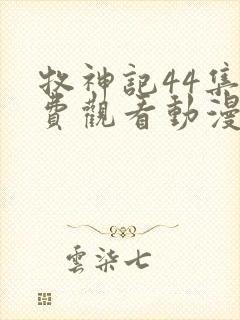 牧神記44集
費觀看動漫
雲染七